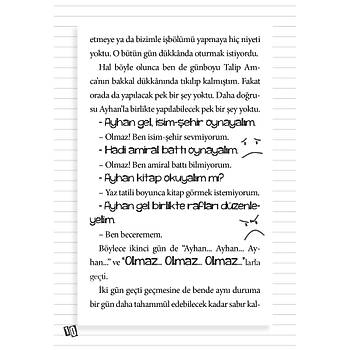 etmeye ya da bizimle işbölümü yapmaya hiç niyeti
yoktu. O bütün gün dükkânda oturmak istiyordu.
Hal böyle olunca ben de günboyu Talip Am-
ca'nın bakkal dükkânında tıkılıp kalmıştım. Fakat
orada da yapılacak pek bir şey yoktu. Daha doğru-
su Ayhan'la birlikte yapılabilecek pek bir şey yoktu.
- Ayhan gel, isim-şehir oynayalım.
– Olmaz! Ben isim-şehir sevmiyorum.
- Hadi amiral battı oynayalım.
– Olmaz! Ben amiral battı bilmiyorum.
- Ayhan kitap okuyalım mı?
– Yaz tatili boyunca kitap görmek istemiyorum.
- Ayhan gel birlikte rafları düzenle-
yelim.
– Ben beceremem.
Böylece ikinci gün de "Ayhan... Ayhan... Ay-
han..." ve "Olmaz... Olmaz... Olmaz..."larla
geçti.
İki gün geçti geçmesine de bende aynı duruma
bir gün daha tahammül edebilecek kadar sabır kal-
10